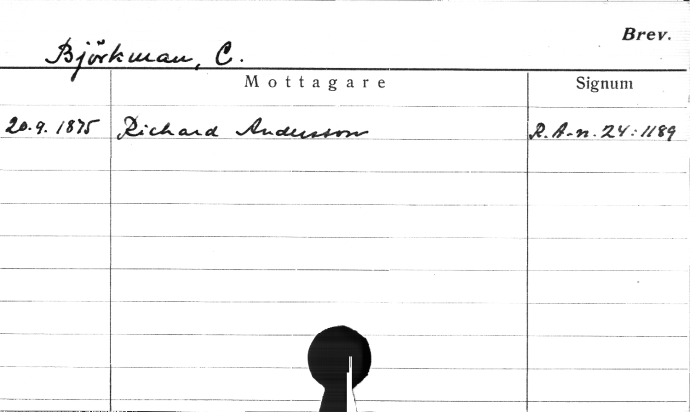 Brev.
Björkman, C.
Mottagare Signum
20.9. 1875 Richard Andersson R. A-n. 24:1189